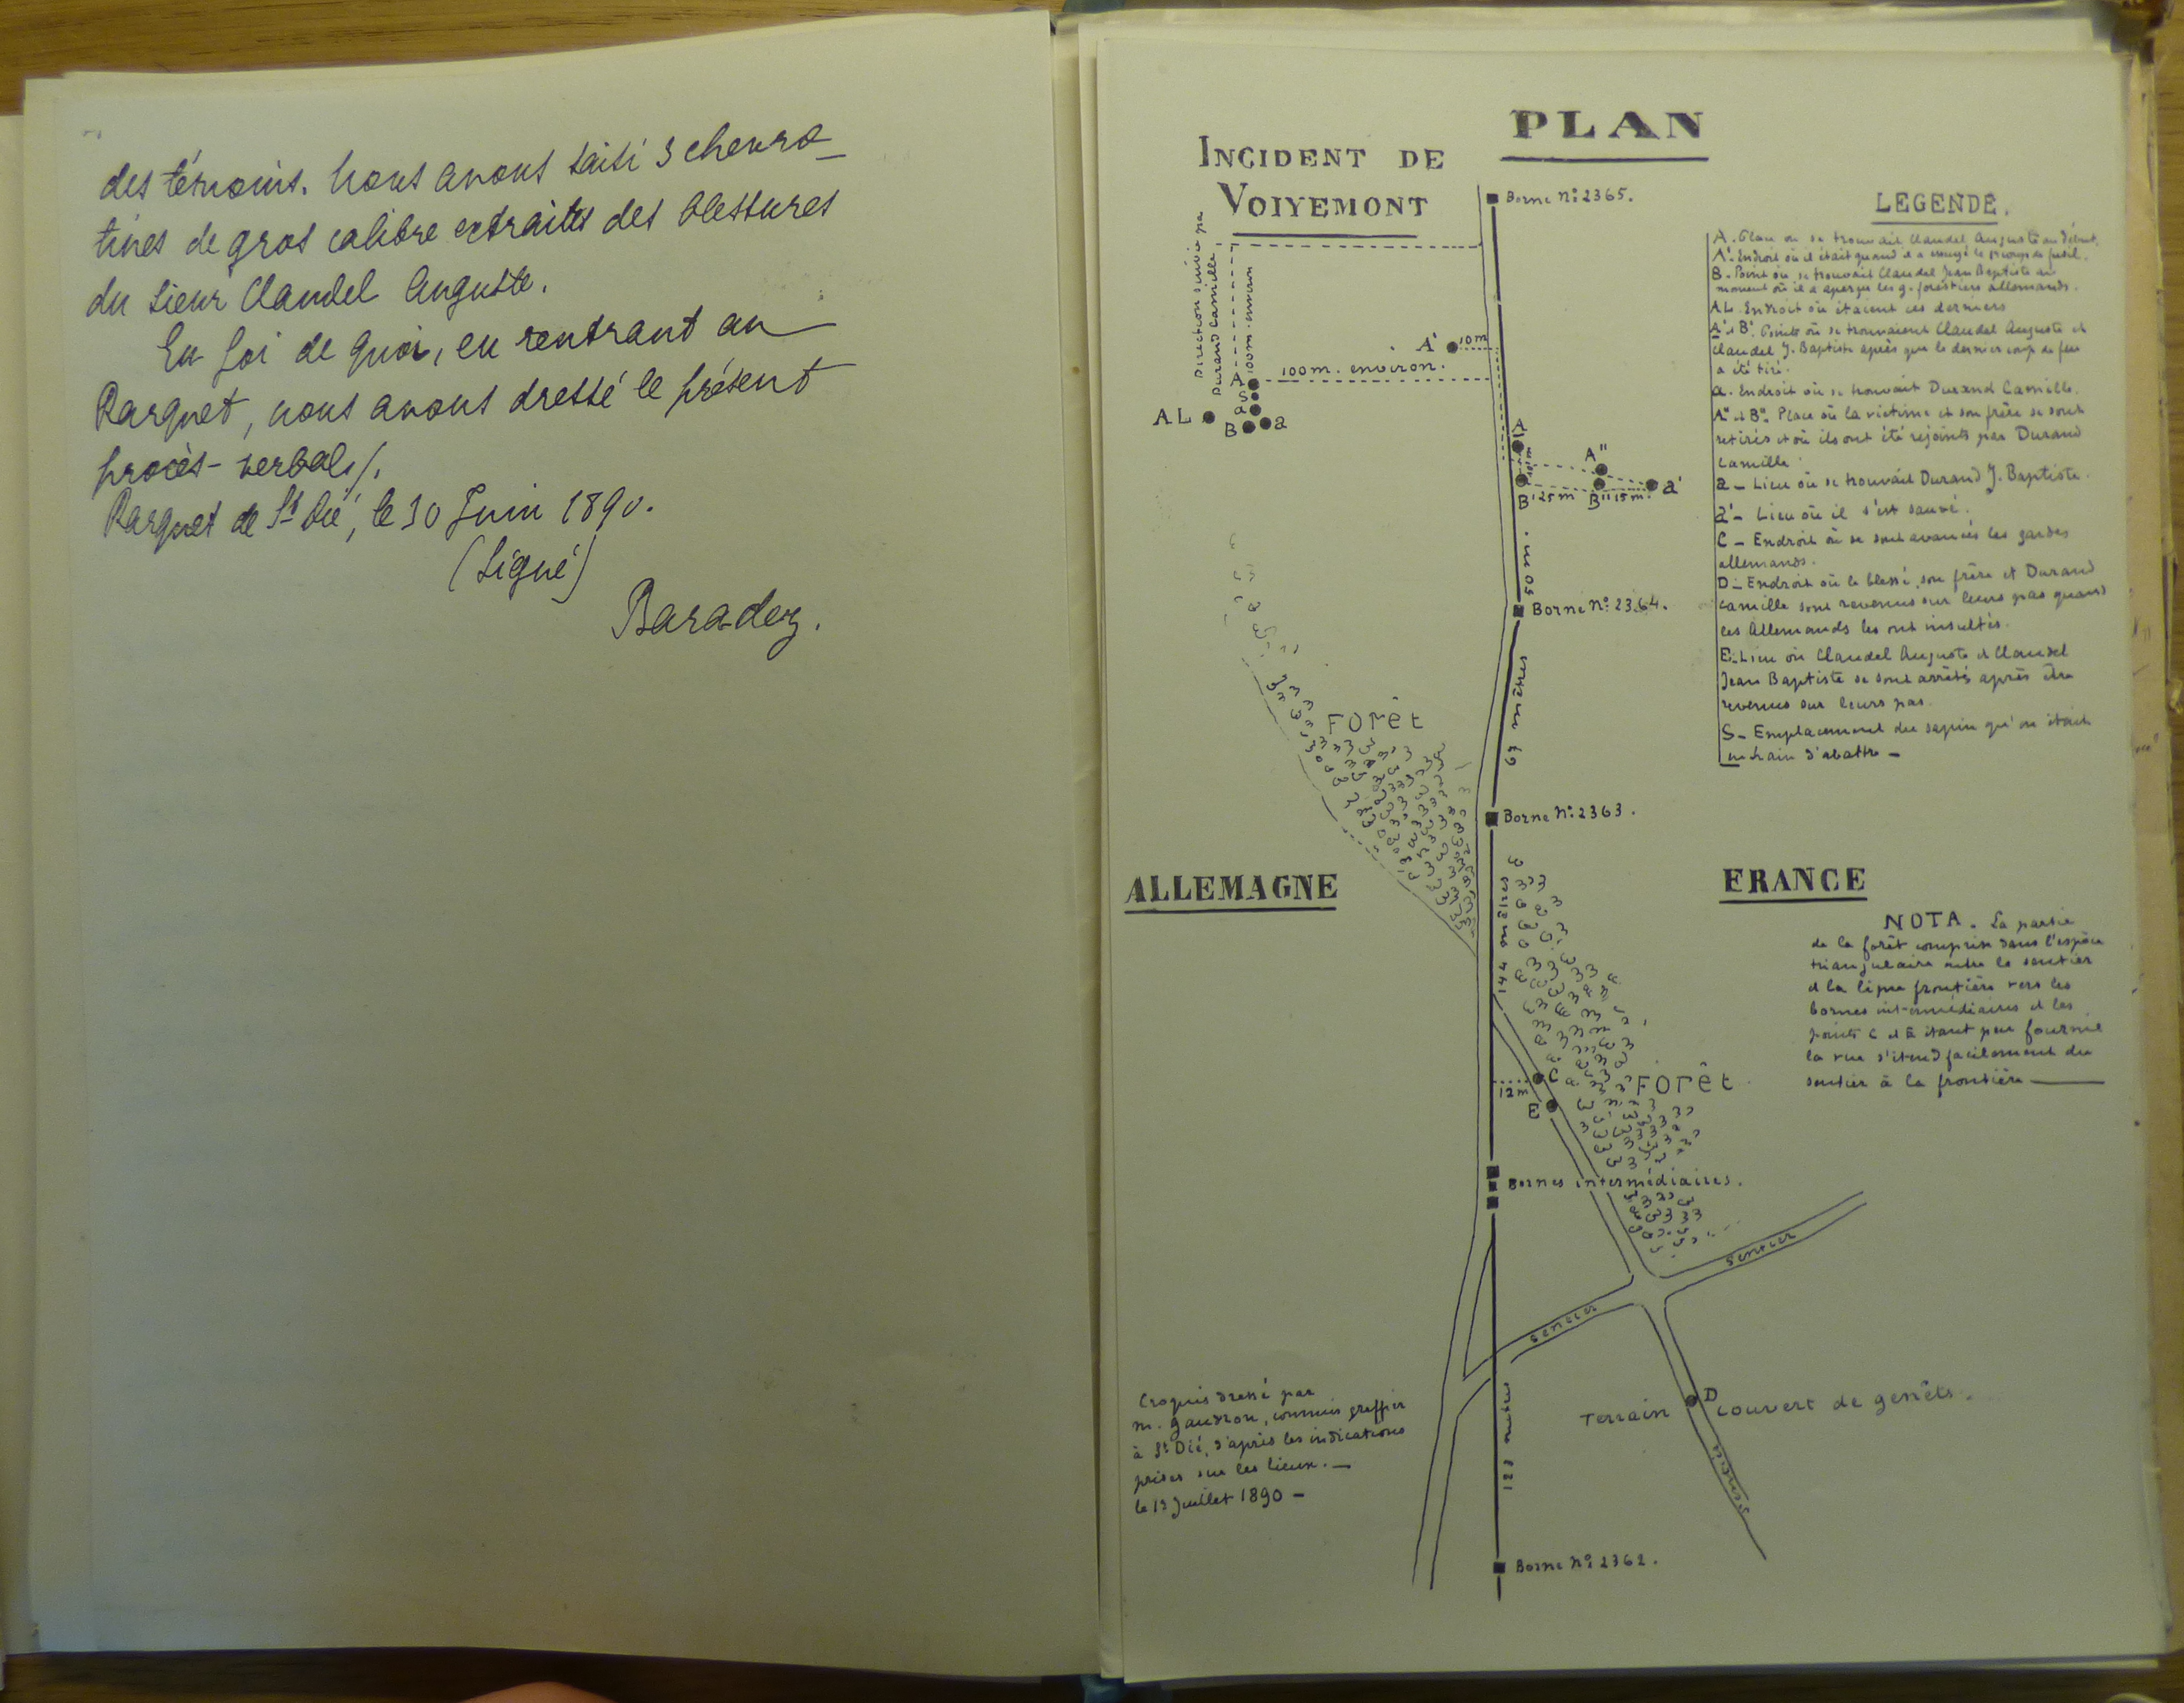 des témoins. Nous avons saisi 3 chevro_
tines de gros calibre extraites des blessures
du sieur Claudel Auguste.
En foi de quoi, en rentrant au
Parquet, nous avons dressé le présent
procès-verbal ./.
Parquet de St Dié, le 30 Juin 1890.
(Signé)
Baradez.
PLAN
INCIDENT DE
VOIYEMONT
Borne No: 2365.
Direction suivie par
Durand Camille
100m. environ
A' 10m
100m. environ.
A
S
a
AL
B a
A
A"
B' 25m B" 15m. a'
50m.
Borne No: 2364.
67 mètres
Forêt
Borne No: 2363.
ALLEMAGNE
FRANCE
144 mètres
C
12m
E
Forêt
Bornes intermédiaires.
sentier
sentier
D
Terrain couvert de genêts.
sentier
123 mètres
Borne No 2362.
LEGENDE.
A. Place où se trouvait Claudel Auguste au début.
A'. Endroit où il était quand il a essuyé le coup de fusil.
B. Point où se trouvait Claudel Jean Baptiste au
moment où il a aperçu les g. forestiers allemands.
AL. Endroit où étaient ces derniers
A' et B'. Points où se trouvaient Claudel Auguste et
Claudel J. Baptiste après que le dernier coup de feu
a été tiré.
a. Endroit où se trouvait Durand Camille.
A" et B". Place où la victime et son frère se sont
retirés et où ils ont été rejoints par Durand
Camille.
a _ Lieu où se trouvait Durand J. Baptiste.
a' _ Lieu où il s'est sauvé.
C _ Endroit où se sont avancés les gardes
allemands.
D _ Endroit où le blessé, son frère et Durand
Camille sont revenus sur leurs pas quand
les Allemands les ont insultés.
E. Lieu où Claudel Auguste et Claudel
Jean Baptiste se sont arrêtés après être
revenus sur leurs pas.
S _ Emplacement du sapin qu'on était
en train d'abattre _
NOTA. La partie
de la forêt comprise dans l'espace
triangulaire entre le sentier
et la ligne frontière vers les
bornes intermédiaires et les
points C et E étant peu fournie
la vue s'étend facilement du
sentier à la frontière
Croquis dressé par
M. Gaudron, commis greffier
à St Dié, d'après les indications
prises sur les lieux. _
le 13 Juillet 1890 _